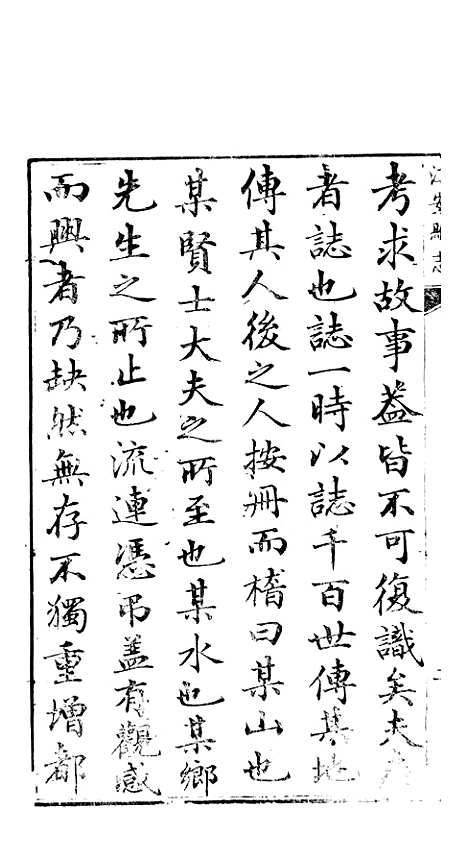 安縣志
考求故事蓋皆不可復識矣夫
者誌也誌一時以誌千百世傳其地
傳其人後之人按冊而稽曰某山也
某賢士大夫之所至也某水也某鄉
先生之所止也流連憑弔蓋有觀感
而興者乃缺然無存不獨重增都